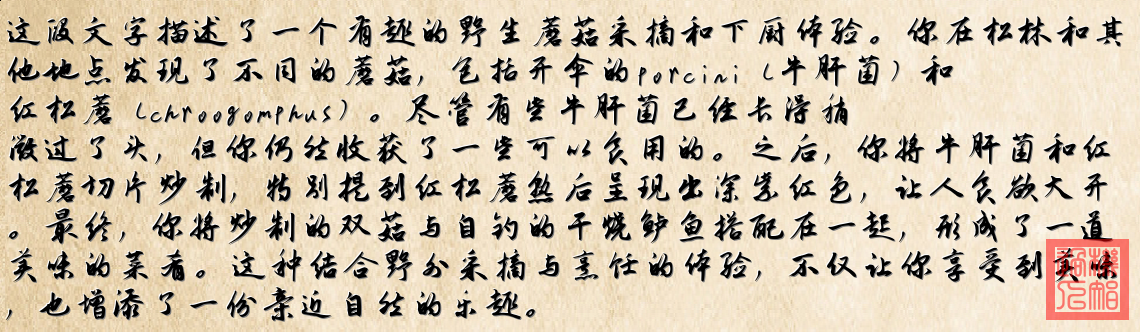 这段文字描述了一个有趣的野生蘑菇采摘和下厨体验。你在松林和其
他地点发现了不同的蘑菇，包括开伞的porcini（牛肝菌）和
红松蘑（chroogomphus）。尽管有些牛肝菌已经长得稍
微过了头，但你仍然收获了一些可以食用的。之后，你将牛肝菌和红
松蘑切片炒制，特别提到红松蘑熟后呈现出深紫红色，让人食欲大开
。最终，你将炒制的双菇与自钓的干烧鲈鱼搭配在一起，形成了一道
美味的菜肴。这种结合野外采摘与烹饪的体验，不仅让你享受到美味
，也增添了一份亲近自然的乐趣。